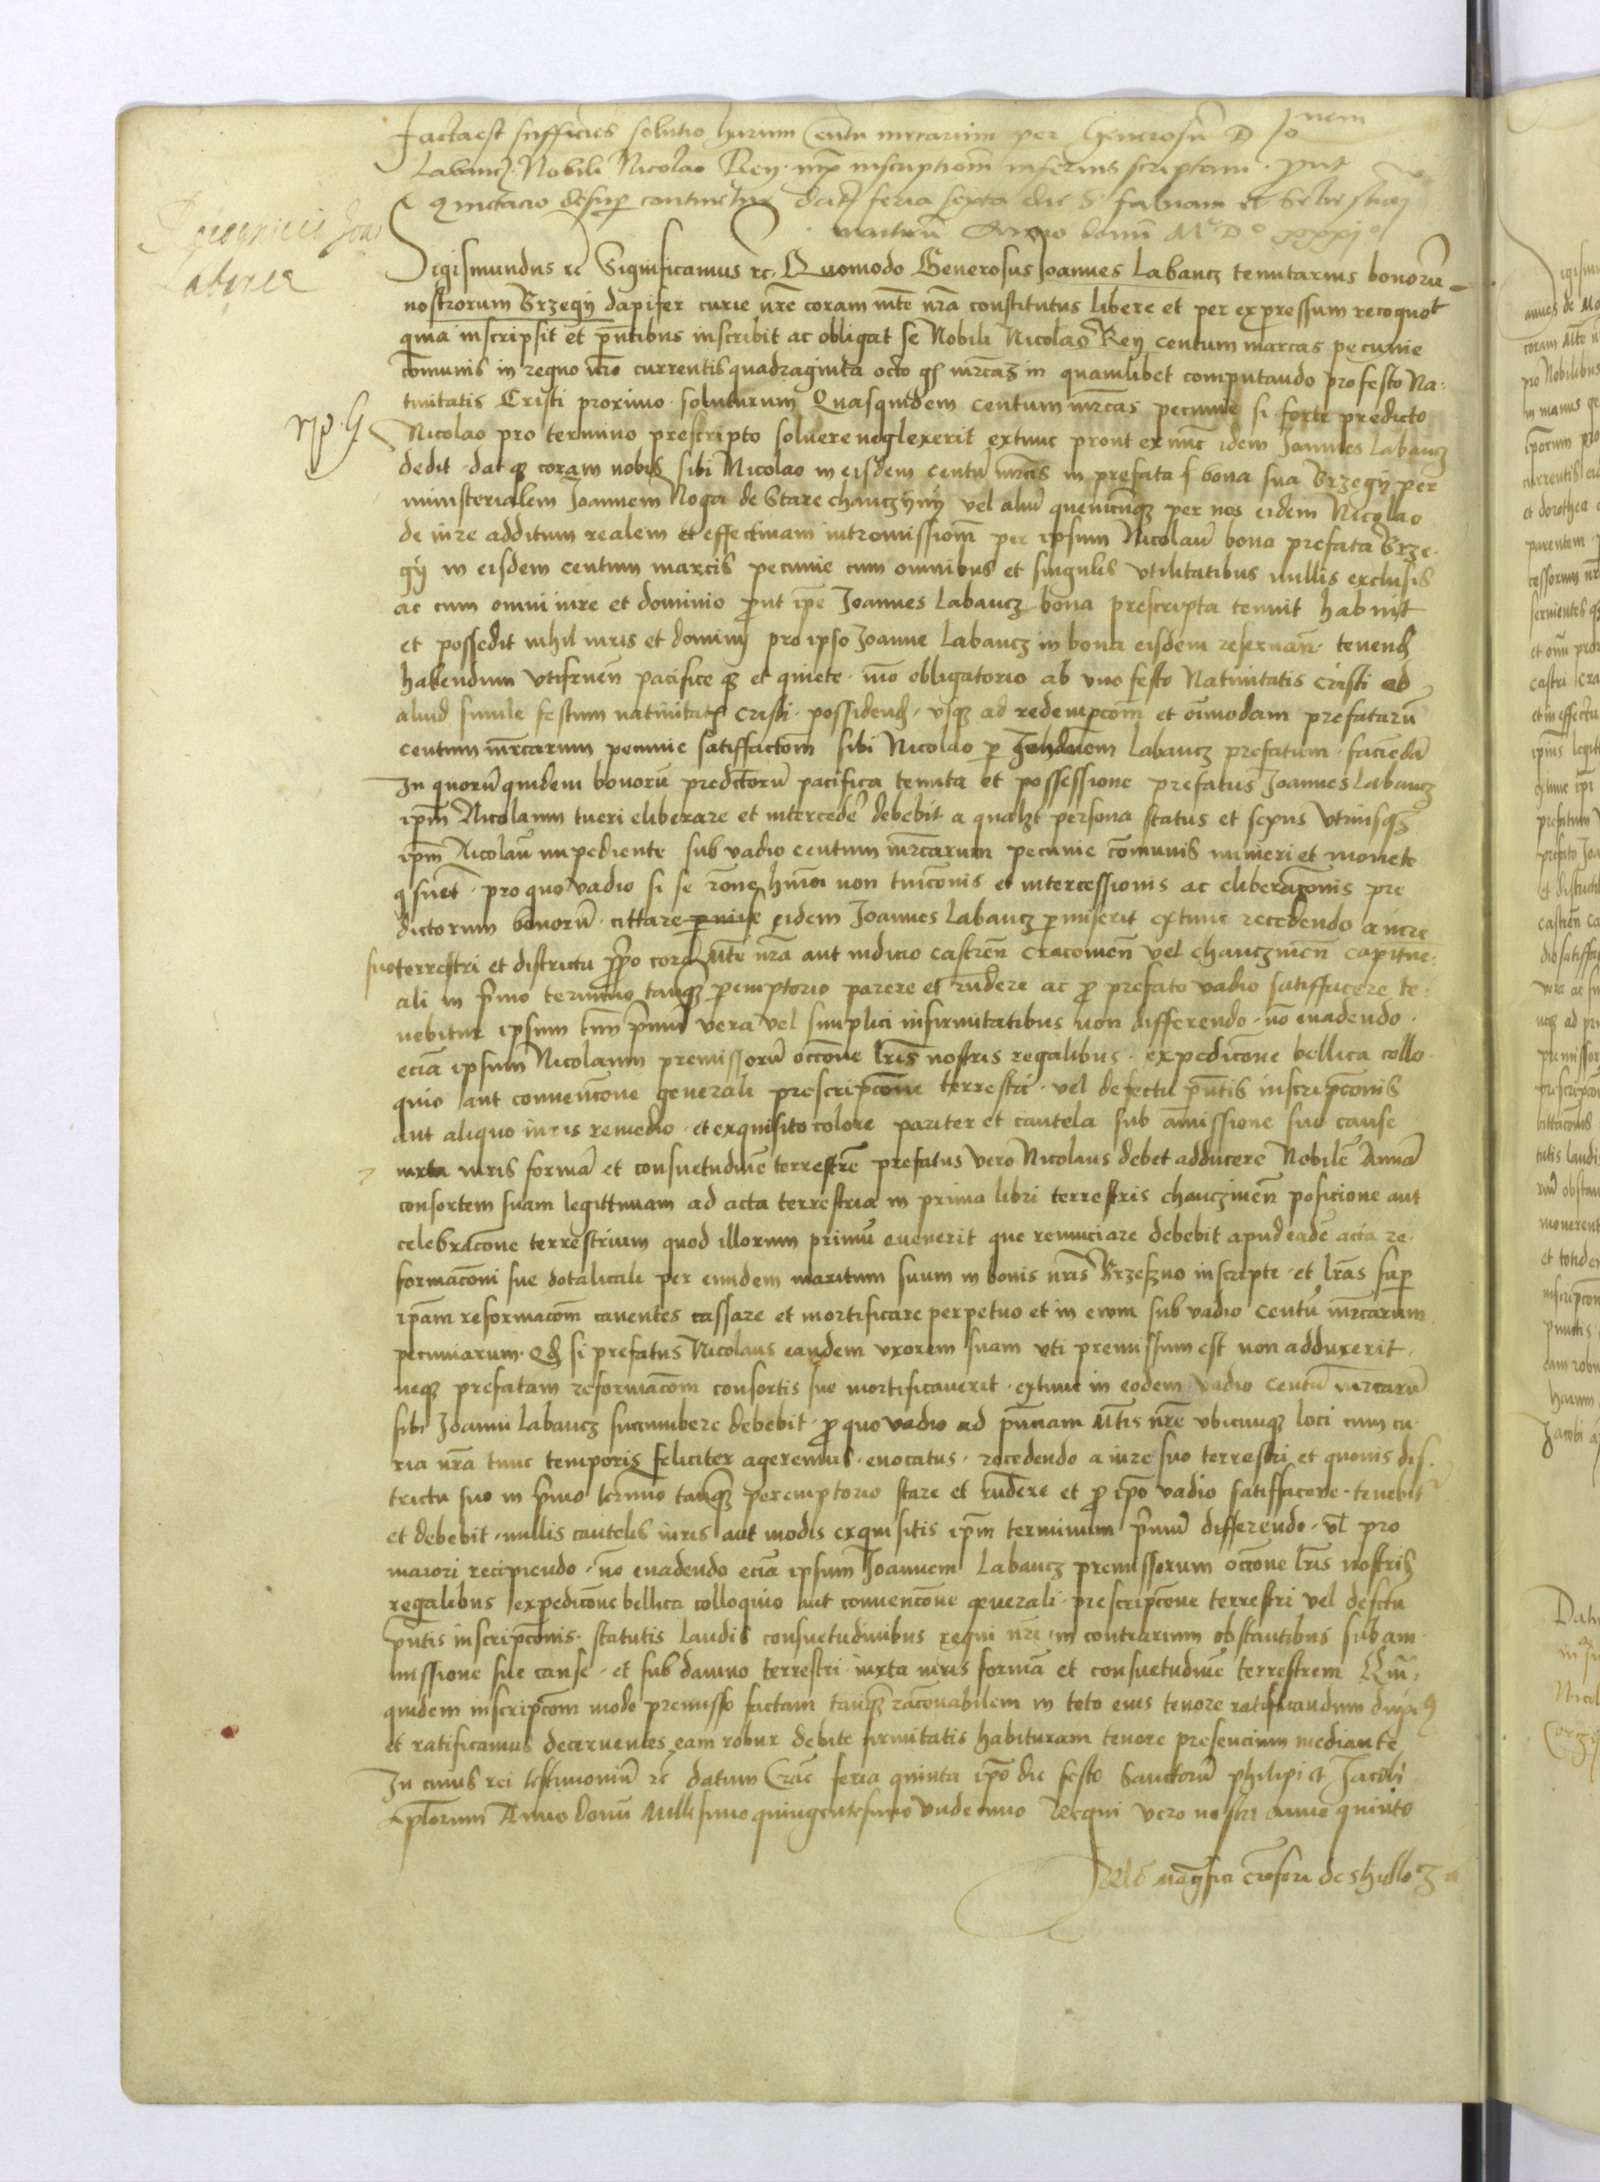 Facta est sufficiens solutio harum Centu mrcarum per Generosu D Jo nem
Labancz Nobili Nicolao Rey inscriptiom inferius scriptam put
Quietacio desup continetur dat feria sexta die S fabiani et Sebestiani
martirum Anno domi Mo Do xxxjo
Labancz
Sigismundus rc Significamus rc Quomodo Generosus Joannes Labancz tenutarius bonoru
nostrorum Brzegy dapifer curie nre coram mte nra constitutus libere et per expressum recognovt
quia inscripsit et pntibus inscribit ac obligat se Nobili Nicolao Rey centum marcas pecunie
comunis in regno nro currentis quadraginta octo gs mrcas in quamlibet computando pro festo Na-
tivitatis Cristi proximo soluturum Quasquidem centum mrcas pecunie si forte predicto
Nicolao pro termino prescripto solvere neglexerit extunc prout ex nunc idem Joannes Labancz
dedit datq coram nobis sibi Nicolao in eisdem centu mrcis in prefata bona sua Brzegy per
ministerialem Joannem Noga de Stare chanczyny vel aliu quemcunq per nos eidem Nicolao
de iure additum realem et effectivam intromissiom per ipsum Nicolau bona prefata Brze-
gy in eisdem centum marcis pecunie cum omnibus et singulis utilitatibus nullis exclusis
ac cum omni iure et dominio prout ipe Joannes Labancz bona prescripta tenuit habuit
et possedit nihil iuris et dominij pro ipso Joanne Labancz in bona eisdem reservan tenend
habendum utifruen pacifice q et quiete mo obligatorio ab uno festo Nativitatis cristi ad
aliud simile festum nativitatis cristi possidend usq ad redempcom et oimodam prefataru
centum mrcarum pecunie satisfactom sibi Nicolao p Johannem Labancz prefatum faciendā
In quoru quidem bonoru predictoru pacifica tenuta et possessione prefatus Joannes Labancz
ipm Nicolaum tueri eliberare et intercede debebit a qualzt persona status et sexus utriusq
ipm Nicolau impediente sub vadio centum mrcarum pecunie comunis numeri et monete
qsuet pro quo vadio si se rone hmoi non tuiconis et intercessionis ac eliberaconis pre
dictorum bonoru cittare eidem Joannes Labancz pmiserit extunc recedendo a iure
suo terrestri et districtu pprio cora Mte nra aut iudicio castren cracovien vel chanczinen capitne-
ali in pmo termino tanq pemptorio parere et rndere ac p prefato vadio satisfacere te-
nebitur ipsum tmi pmu vera vel simplici infirmitatibus non differendo no evadendo
ecia ipsum Nicolaum premissoru occone lris nostris regalibus expedicone bellica collo
quio aut convencone generali prescripcone terrestri vel defectu pntis inscripconis
aut aliquo iuris remedio et exquisito colore pariter et cautela sub amissione sue cause
iuxta iuris formā et consuetudine terrestre prefatus vero Nicolaus debet adducere Nobile Annā
consortem suam legittimam ad acta terrestria in prima libri terrestris chanczinen posicione aut
celebracone terrestrium quod illorum primu evenerit que renunciare debebit apud eade acta re-
formaconi sue dotalicali per eundem maritum suum in bonis nris Brzeszno inscripte et lras sup
ipam reformacom caventes cassare et mortificare perpetuo et in evum sub vadio centu mrcarum
pecuniarum Qd si prefatus Nicolaus eandem uxorem suam uti premissum est non adduxerit
neq prefatam reformacom consortis sue mortificaverit extunc in eodem vadio centu mrcaru
sibi Joanni Labancz succumbere debebit p quo vadio ad pnciam Mtis nre ubicunq loci cum cu
ria nra tunc temporis feliciter ageremus evocatus recedendo a iure suo terrestri et quovis dis-
trictu suo in pmo termino tanq peremptorio stare et rndere et p ipo vadio satisfacere tenebit
et debebit nullis cautelis iuris aut modis exquisitis ipm terminum pmu differendo vl pro
maiori recipiendo no evadendo ecia ipsum Joannem Labancz premissorum occone lris nostris
regalibus expedicone bellica colloquio aut convencone generali prescripcone terrestri vel defectu
pntis inscripconis statutis laudis consuetudinibus regni nri in contrarium obstantibus sub am
missione sue cause et sub damno terrestri iuxta iuris formā et consuetudine terrestrem Qm
quidem inscripcom modo premisso factam tanq raconabilem in toto eius tenore ratificandum duxim9
et ratificamus decernentes eam robur debite firmitatis habituram tenore presencium mediante
In cuius rei testimoniu rc datum Crac feria quinta ipo die festo Sanctoru philipi et Jacobi
aplorum Anno domi Millesimo quingentesimo undecimo Regni vero nostri anno quinto
Relo magfici crofori de shidlo